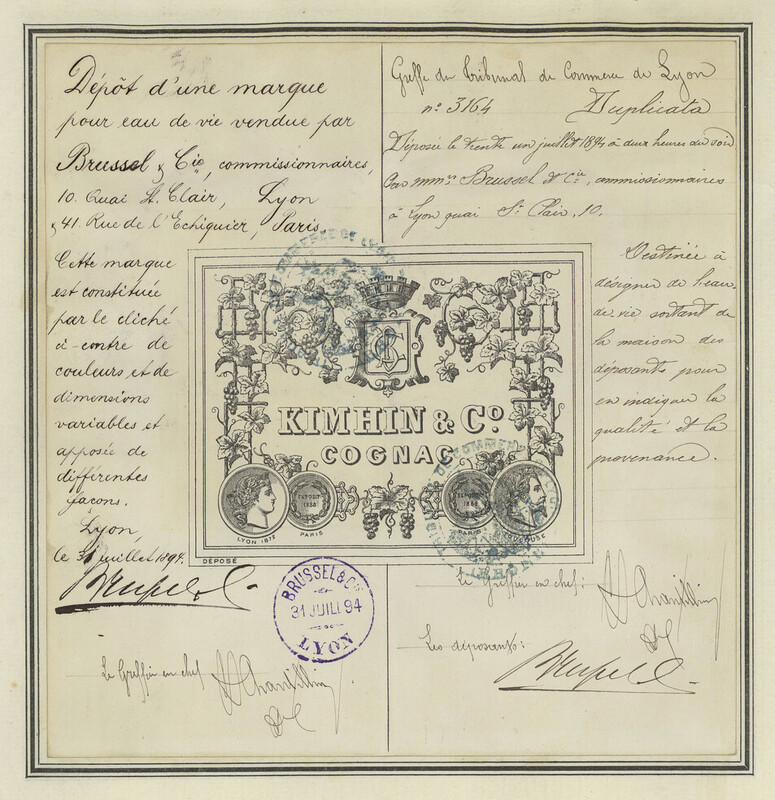 Dépôt d'une marque
pour eau de vie vendue par
Brussel & Cie, commissionnaires,
10. Quai St. Clair, Lyon
& 41 Rue de l'Echiquier, Paris.
Cette marque
est constituée
par le cliché
ci-contre de
couleurs et de
dimensions
variables et
apposée de
différentes
façons.
Lyon,
le 31 juillet 1894.
Brussel &
Le Greffier en chef
Greffe du Tribunal de Commerce de Lyon
n° 3164 Duplicata
Déposée le trente un juillet 1894 à deux heures du soir
Par mmrs Brussel et Cie, commissionnaires
à Lyon quai St Clair, 10.
Destinée à
désigner de l'eau
de vie sortant de
la maison des
déposants pour
en indiquer la
qualité et la
provenance.
KIMHIN & Co.
COGNAC
LYON 1872
PARIS
PARIS
TOULOUSE
DÉPOSÉ
BRUSSEL & Cie
31 JUIL 94
LYON
Le Greffier en chef:
Les déposants:
Brussel &